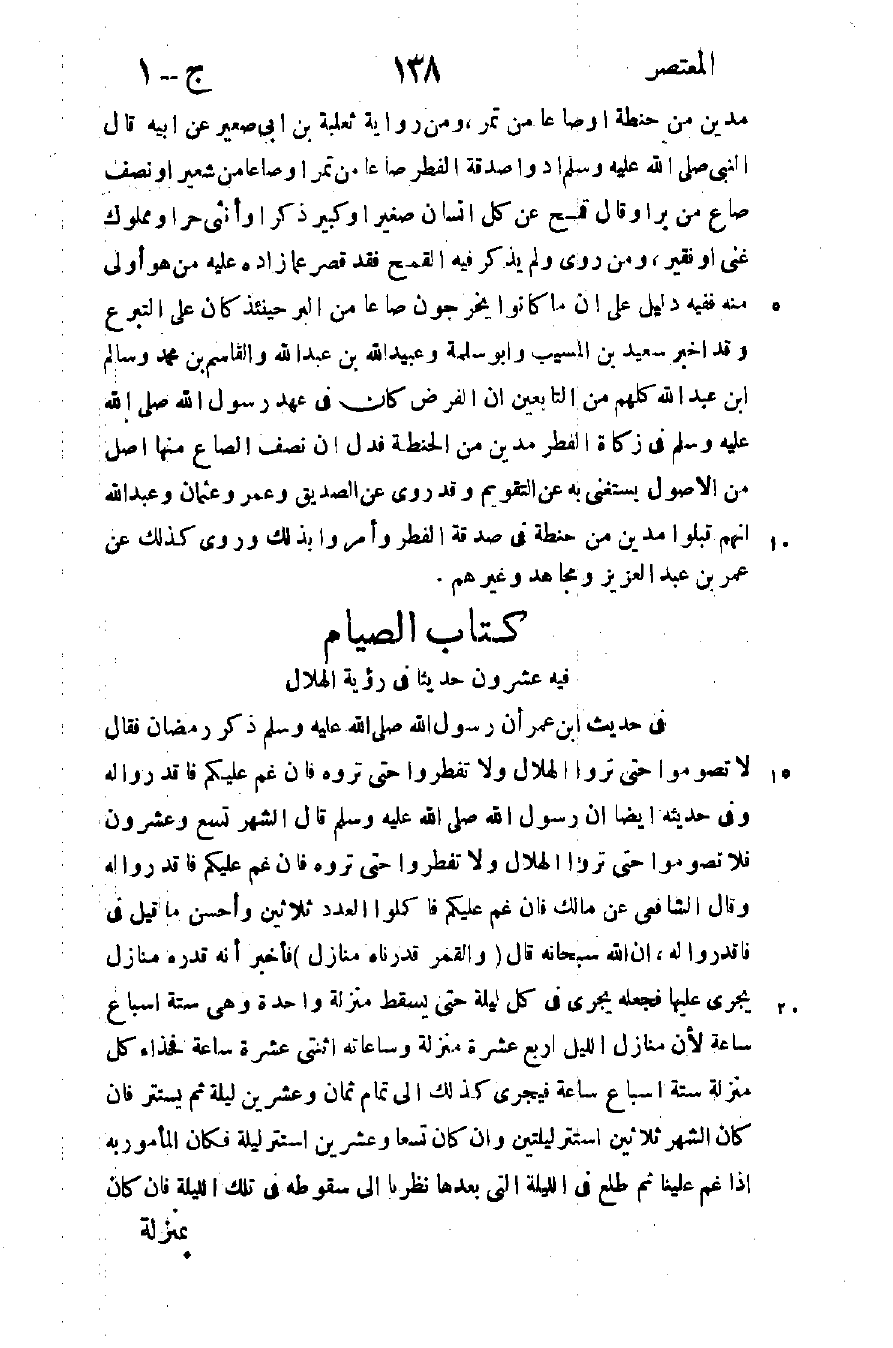 المعتصر ١٣٨ ج--١
مدين من حنطة اوصاعا من تمر، ومن رواية ثعلبة بن ابى صعير عن ابيه قال
النبى صلى الله عليه وسلم ادوا صدقة الفطر صاعا من تمر اوصاعا من شعير اونصف
صاع من براوقال قمح عن كل انسان صغير اوكبير ذكر اوأنثى حر او مملوك
غنى اوفقير، ومن روى ولم يذكر فيه القمح فقد قصر عما زاده عليه من هو أولى
منه ففيه دليل على ان ما كانوا يخرجون صاعا من البر حينئذ كان على التبرع ٥
وقد اخبر سعيد بن المسيب وابوسلمة وعبيدالله بن عبدالله والقاسم بن محمد وسالم
ابن عبدالله كلهم من التابعين ان الفرض كان فى عهد رسول الله صلى الله
عليه وسلم فى زكاة الفطر مدين من الحنطة فدل ان نصف الصاع منها اصل
من الاصول يستغنى به عن التقويم وقد روى عن الصديق وعمر وعثمان وعبدالله
انهم قبلوا مدين من حنطة فى صدقة الفطر وأمروا بذلك وروى كذلك عن ١٠
عمر بن عبد العزيز ومجاهد وغيرهم .
كتاب الصيام
فيه عشرون حديثا فى رؤية الهلال
فى حديث ابن عمر أن رسول الله صلى الله عليه وسلم ذكر رمضان فقال
لا تصوموا حتى تروا الهلال ولا تفطروا حتى تروه فان غم عليكم فاقدرواله ١٥
وفى حديثه ايضا ان رسول الله صلى الله عليه وسلم قال الشهر تسع وعشرون
فلا تصوموا حتى تروا الهلال ولا تفطروا حتى تروه فان غم عليكم فاقدرواله
وقال الشافعى عن مالك فان غم عليكم فاكلوا العدد ثلاثين وأحسن ما قيل فى
فاقدروا له، ان الله سبحانه قال (والقمر قدرناه منازل) فأخبر أنه قدره منازل
يجرى عليها فجعله يجرى فى كل ليلة حتى يسقط منزلة واحدة وهى ستة اسباع ٢٠
ساعة لأن منازل الليل اربع عشرة منزلة وساعاته اثنتى عشرة ساعة فحذاء كل
منزلة ستة اسباع ساعة فيجرى كذلك الى تمام ثمان وعشرين ليلة ثم يستتر فان
كان الشهر ثلاثين استتر ليلتين وان كان تسعا وعشرين استتر ليلة فكان المأموربه
اذا غم علينا ثم طلع فى الليلة التى بعدها نظرنا الى سقوطه فى تلك الليلة فان كان
بمنزلة